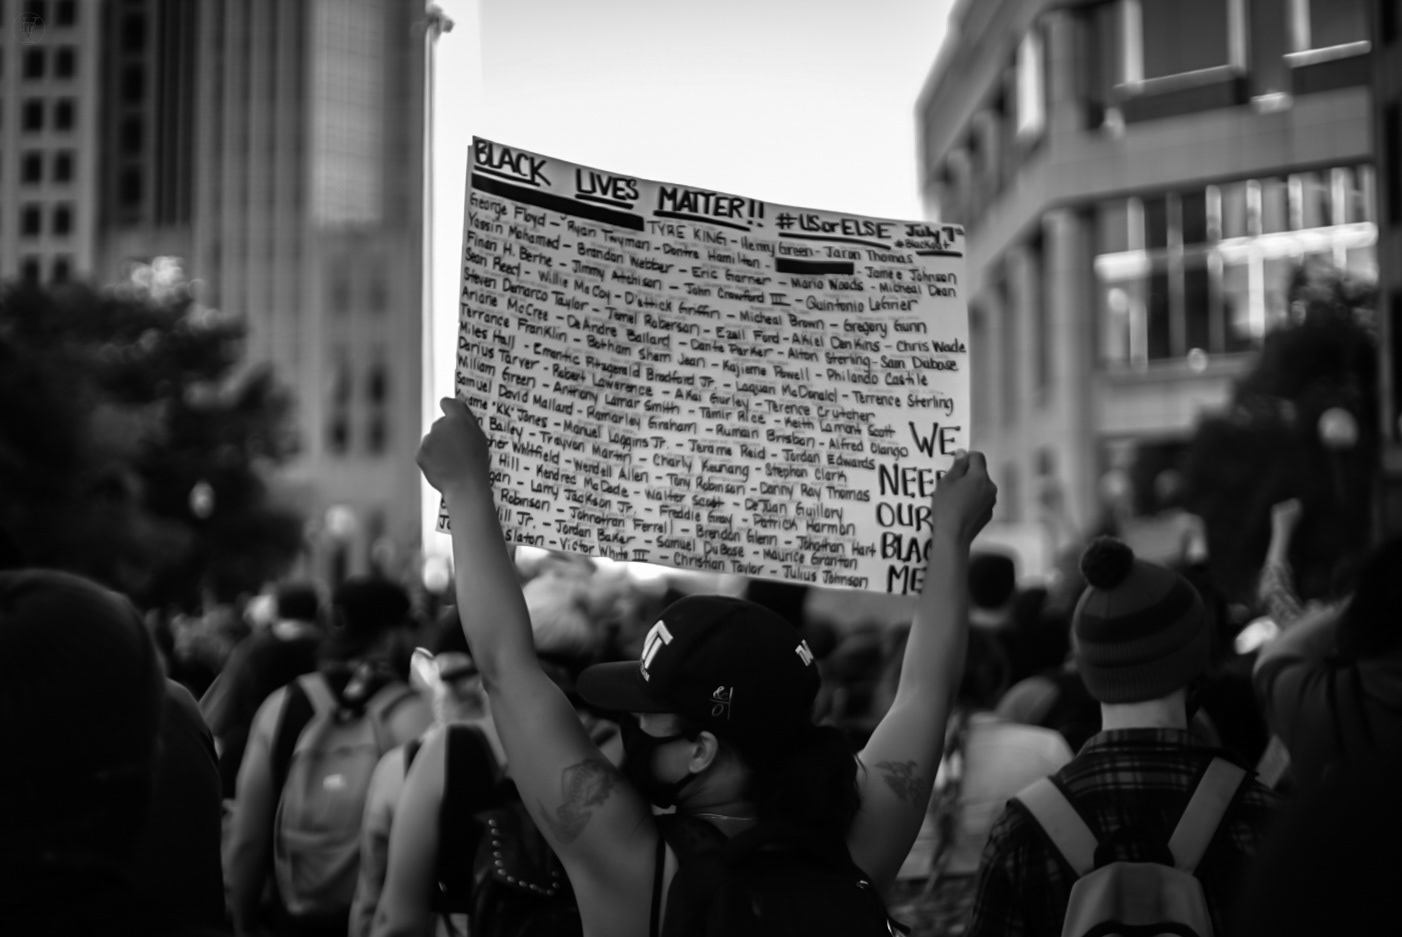 BLACK LIVES MATTER!! #USorELSE July 7th
#Blackout
George Floyd - Ryan Twyman - TYRE KING - Henry Green - Jaron Thomas
Yassin Mohamed - Brandon Webber - Dontre Hamilton - Jamee Johnson
Finan H. Berhe - Jimmy Atchison - Eric Garner - Mario Woods - Micheal Dean
Sean Reed - Willie McCoy - D'ettick Griffin - John Crawford III - Quintonio LeGrier
Steven Demarco Taylor - Jemel Roberson - Ezell Ford - Micheal Brown - Gregory Gunn
Ariane McCree - DeAndre Ballard - Dante Parker - Akiel Denkins - Chris Wade
Terrance Franklin - Botham Shem Jean - Kajieme Powell - Alton Sterling - Sam Dubose
Miles Hall - Emantic Fitzgerald Bradford Jr. - Laquan McDonald - Philando Castile
Darius Tarver - Robert Lawerence - Akai Gurley - Terence Crutcher - Terrence Sterling
William Green - Anthony Lamar Smith - Tamir Rice - Keith Lamont Scott
Samuel David Mallard - Ramarley Graham - Rumain Brisbon - Alfred Olango
"KK" Jones - Manuel Loggins Jr. - Jerame Reid - Jordan Edwards
Bailey - Trayvon Martin - Charly Keunang - Stephon Clark
Whitfield - Wendell Allen - Tony Robinson - Danny Ray Thomas
Hill - Kendrec McDade - Walter Scott - DeJuan Guillory
Larry Jackson Jr. - Freddie Gray - Patrick Harmon
Robinson - Johnathan Ferrell - Brendon Glenn - Johathan Hart
Jr. - Jordan Baker - Samuel DuBose - Maurice Granton
Victor White III - Christian Taylor - Julius Johnson
WE
NEED
OUR
BLAC
ME